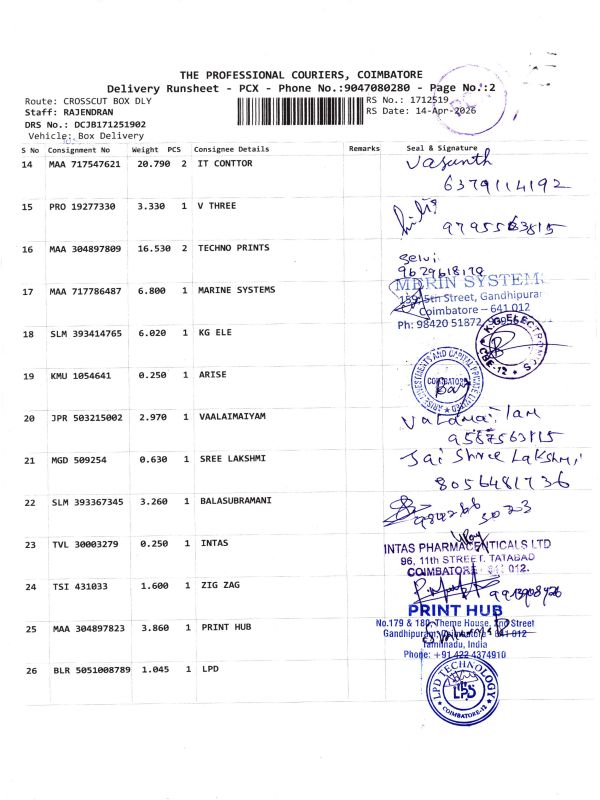 THE PROFESSIONAL COURIERS, COIMBATORE
Delivery Runsheet - PCX - Phone No.:9047080280 - Page No.:2
Route: CROSSCUT BOX DLY
RS No.: 1712519
Staff: RAJENDRAN
RS Date: 14-Apr-2026
DRS No.: DCJB171251902
Vehicle: Box Delivery
S No Consignment No Weight PCS Consignee Details Remarks Seal & Signature
14 MAA 717547621 20.790 2 IT CONTTOR Vasanth
6379114192
15 PRO 19277330 3.330 1 V THREE
16 MAA 304897809 16.530 2 TECHNO PRINTS Selvi
9629618178
17 MAA 717786487 6.800 1 MARINE SYSTEMS
MERIN SYSTEMS
159, 5th Street, Gandhipuram
Coimbatore - 641 012
Ph: 98420 51872
18 SLM 393414765 6.020 1 KG ELE
K.G. ELECTRONICS
CBE-12
19 KMU 1054641 0.250 1 ARISE
COIMBATORE
20 JPR 503215002 2.970 1 VAALAIMAIYAM
9587563115
21 MGD 509254 0.630 1 SREE LAKSHMI Jai Shree Lakshmi
8056481736
22 SLM 393367345 3.260 1 BALASUBRAMANI
23 TVL 30003279 0.250 1 INTAS
INTAS PHARMACEUTICALS LTD
96, 11th STREET, TATABAD
COIMBATORE - 641 012.
24 TSI 431033 1.600 1 ZIG ZAG
25 MAA 304897823 3.860 1 PRINT HUB
PRINT HUB
No.179 & 180, Theme House, 2nd Street
Gandhipuram, Coimbatore - 641 012
Tamilnadu, India
Phone: +91 422 4374910
26 BLR 5051008789 1.045 1 LPD
LPD TECHNOLOGY
COIMBATORE-12